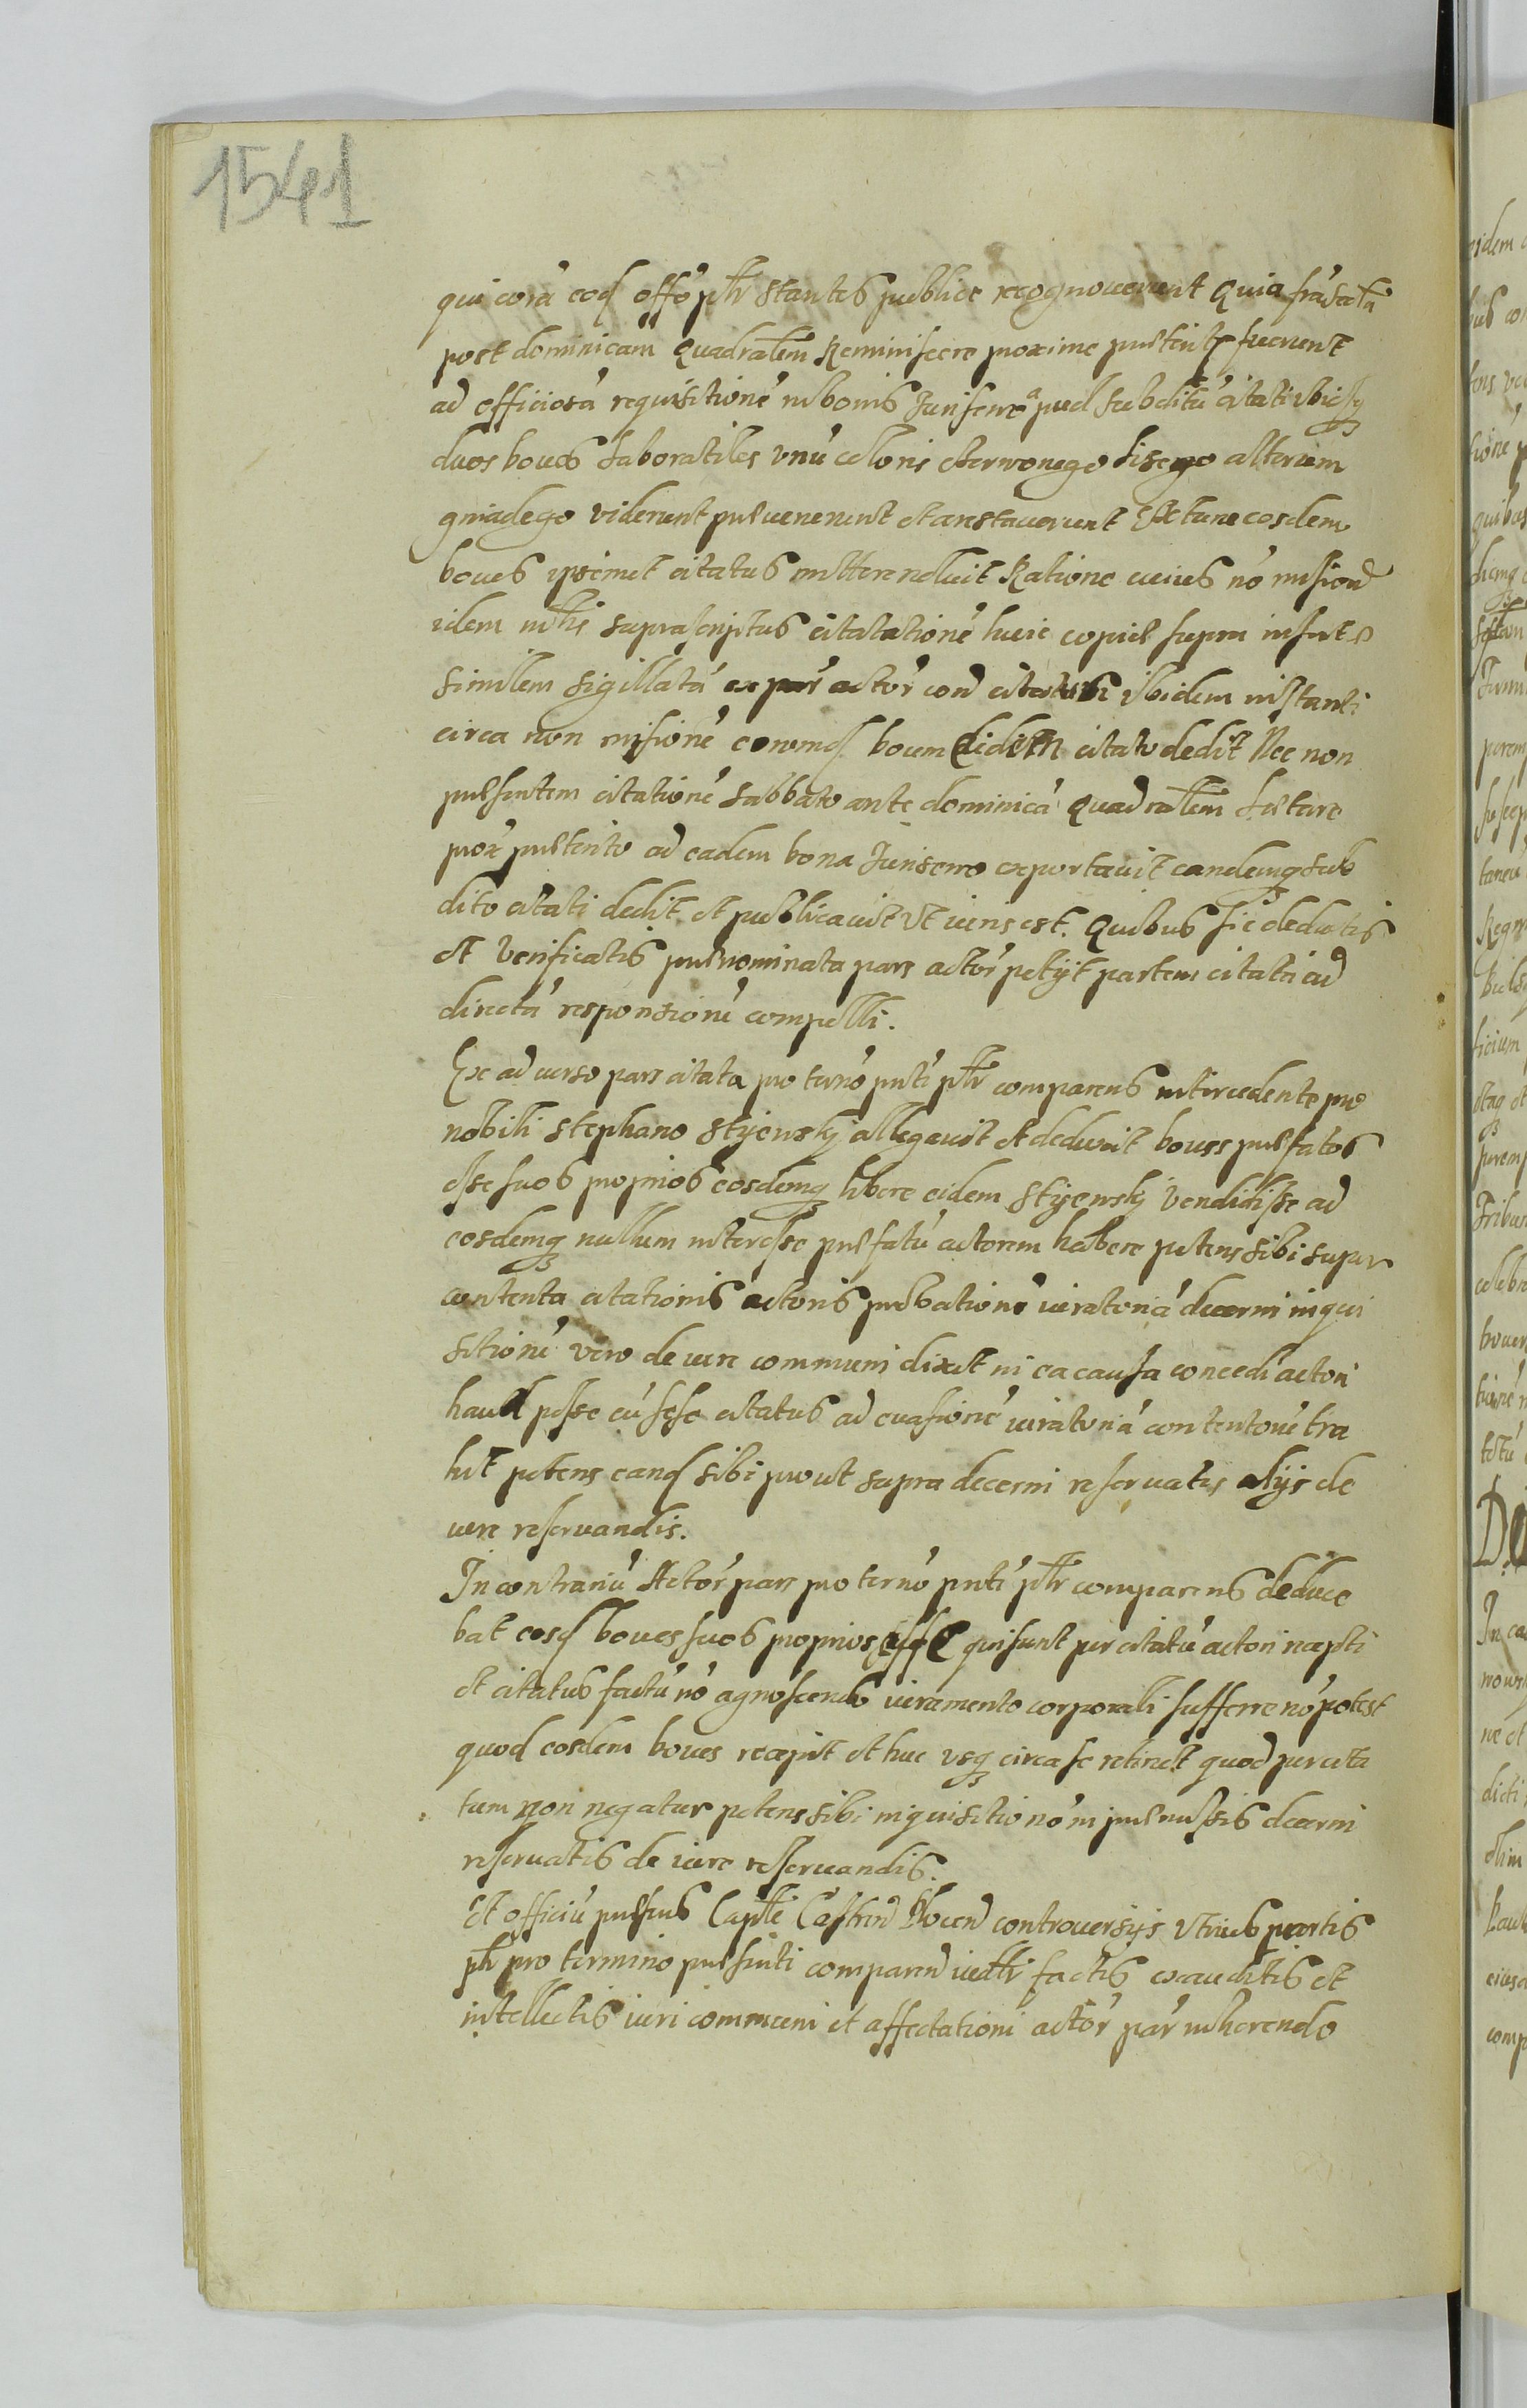 1541
qui corã eod offõ pltr stantes publice recognouerunt Quia fr̃a secũda
post dominicam Quadralem Reminiscere proxime preterite fuerunt
ad officiosã requisitionẽ in bonis Juriserw apud subditũ citati ibiq3
duos boues laboratiles vnũ coloris cterwonego lisego alterum
gniadego viderunt preuenerunt et arestauerunt Ex tunc eosdem
boues ipsemet citatus mittere noluit Ratione cuius nõ missionẽ
idem suprascriptus citatationẽ huic copiæ supra insertæ
similem sigillatã ex par actor con citatum ibidem instanti
circa non missionẽ eorund boum eidem citato dedit Nec non
præsentem citationẽ Sabbato ante dominicã Quadralem Lætare
prox præterito ad eadem bona Juriserw exportauit eandemq3 sub
dito citati dedit et publicauit vt iuris est. Quibus sic deductis
et verificatis prænominata pars actor petijt partem citati ad
directã responsionẽ compelli.
Ex aduerso pars citata pro terno pnti pltr comparens intercedente pro
nobili Stephano Styensky allegauit et deduxit boues præfatos
esse suos proprios eosdemq3 libere eidem Styensky vendidisse ad
eosdemq3 nullum interesse præfatũ actorem habere petens sibi super
contenta citationis actoris probationẽ iuratoriã decerni inqui
sitionẽ vero de iure communi dixit in ea causa concedi actori
haud posse cũ sese citatus ad euasionẽ iuratoriã contentouẽ tra
hit petens eand sibi prout supra decerni reseruatis alijs de
iure reseruandis.
In contrariũ Actor pars pro terno pnti pltr comparens deduce
bat eosd boues suos proprios esse qui sunt per citatũ actori recepti
et citatus factũ nõ agnoscendo iuramento corporali sufferre nõ potest
quod eosdem boues recepit et huc vsq3 circa se retinet quod per cita
tum non negatur petens sibi inquisitionẽ in præmissis decerni
reseruatis de iure reseruandis.
Et officiũ præsens Caple Castren controuersijs vtrius partis
pltr pro termino præsenti comparen factis exauditis et
intellectis iuri communi et affectationi actor par inherendo